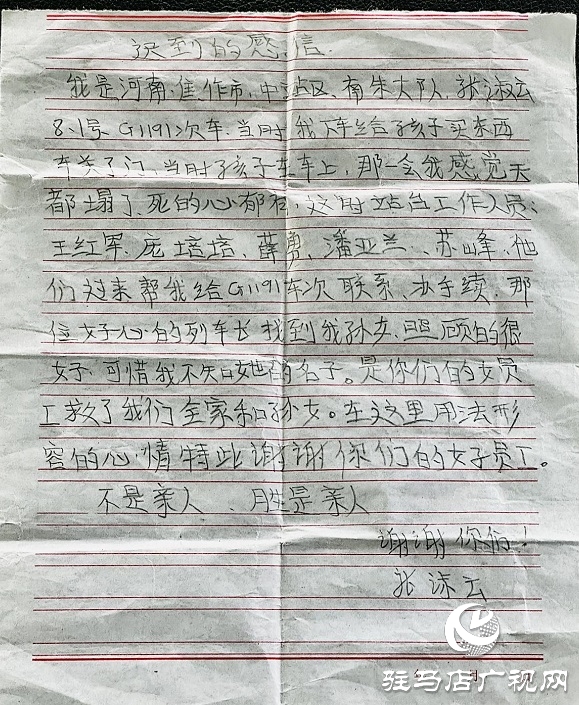 迟到的感信
我是河南焦作市,中站区,南朱大队,张淑云
8.1号G1191次车.当时我下车给孩子买东西
车关了门,当时孩子在车上,那一会我感觉天
都塌了,死的心都有,这时站台工作人员、
王红军、庞培培、薛勇、潘亚兰、苏峰、他
们过来帮我给G1191车次联系、办手续,那
位好心的列车长找到我孙女.照顾的很
好,可惜我不知她的名子。是你们的好员
工救了我们全家和孙女。在这里用法形
容的心情特此谢谢你们的好员工。
不是亲人、胜是亲人
谢谢你们!
张淑云
年 月 日
驻马店广视网